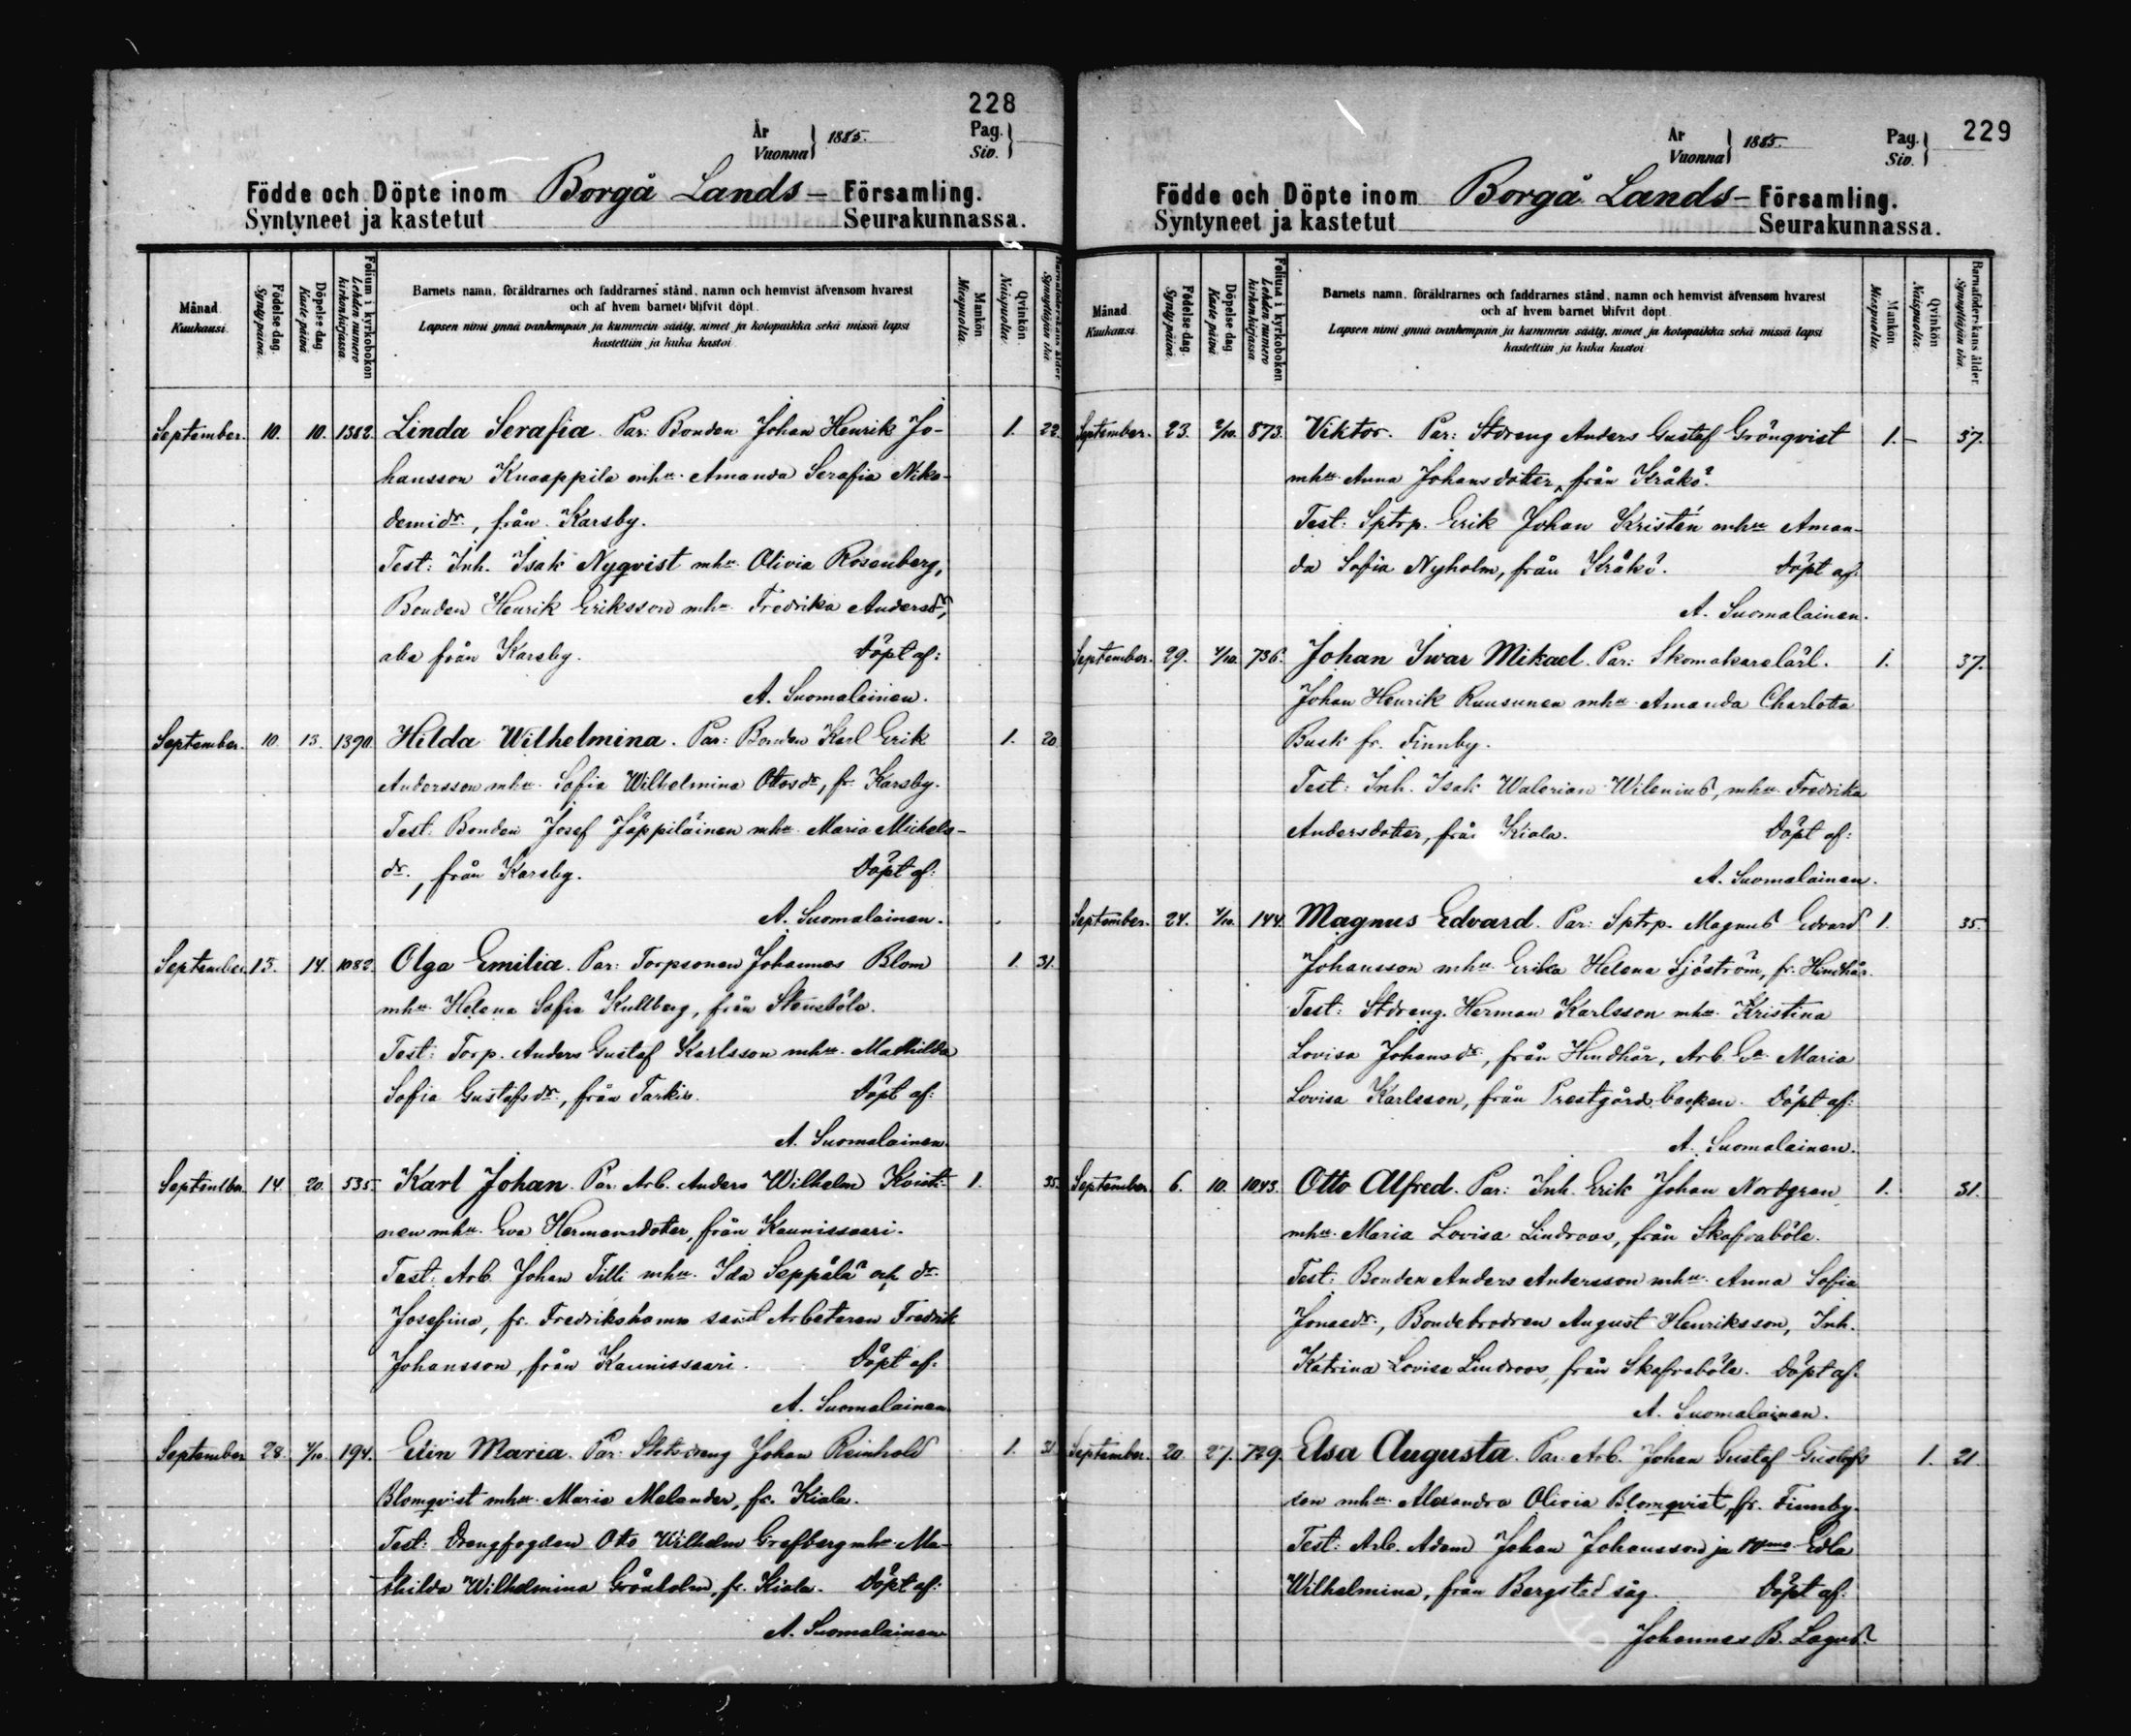 228
År
Vuonna } 1885.
Pag.
Siv. }
Födde och Döpte inom Borgå Lands- Församling.
Syntyneet ja kastetut Seurakunnassa.
Månad. Kuukausi.
Födelse dag. Syntypäivä.
Döpelse dag. Kaste päivä.
Folium i kyrkoboken. Lehden numero kirkonkirjassa.
Barnets namn, föräldrarnes och faddrarnes stånd, namn och hemvist äfvensom hvarest
och af hvem barnet blifvit döpt.
Lapsen nimi ynnä vanhempain ja kummein sääty, nimet ja kotopaikka sekä missä lapsi
kastettiin ja kuka kastoi.
Mankön. Miespuolia.
Qvinkön. Naispuolia.
Barnaföderskans ålder. Synnyttäjän ikä.
September. 10. 10. 1382. Linda Serafia. Par: Bonden Johan Henrik Jo- 1. 22.
hansson Knaappila mhu. Amanda Serafia Niko-
demidr., från Karsby.
Test: Inh. Isak Nyqvist mhu. Olivia Rosenberg,
Bonden Henrik Eriksson mhu. Fredrika Andersdr,
alla från Karsby. Döpt af:
A. Suomalainen.
September. 10. 13. 1390. Hilda Wilhelmina. Par: Bonden Karl Erik 1. 20
Andersson mhu. Sofia Wilhelmina Ottosdr, fr. Karsby.
Test: Bonden Josef Jäppiläinen mhu. Maria Michels-
dr., från Karsby. Döpt af:
A. Suomalainen.
September. 13. 14. 1082. Olga Emilia. Par: Torpsonen Johannes Blom 1. 31.
mhu. Helena Sofia Kullberg, från Stensböle.
Test: Torp. Anders Gustaf Karlsson mhu. Mathilda
Sofia Gustafsdr., från Tarkis. Döpt af:
A. Suomalainen.
September. 14. 20. 535. Karl Johan. Par: Arb. Anders Wilhelm Koisti- 1. 35.
nen mhu. Eva Hermansdotter, från Kaunissaari.
Test: Arb. Johan Tilli mhu. Ida Seppälä och dr.
Josefina, fr. Fredrikshamn samt Arbetaren Fredrik
Johansson, från Kaunissaari. Döpt af:
A. Suomalainen
September 28. 4/10. 194. Elin Maria. Par: Statsdreng Johan Reinhold 1. 31
Blomqvist mhu. Maria Melander, fr. Kiala.
Test: Drengfogden Otto Wilhelm Grefberg mhu. Ma-
thilda Wilhelmina Grönholm, fr. Kiala. Döpt af:
A. Suomalainen
229
År
Vuonna } 1885.
Pag.
Siv. }
Födde och Döpte inom Borgå Lands- Församling.
Syntyneet ja kastetut Seurakunnassa.
Månad. Kuukausi.
Födelse dag. Syntypäivä.
Döpelse dag. Kaste päivä.
Folium i kyrkoboken. Lehden numero kirkonkirjassa.
Barnets namn, föräldrarnes och faddrarnes stånd, namn och hemvist äfvensom hvarest
och af hvem barnet blifvit döpt.
Lapsen nimi ynnä vanhempain ja kummein sääty, nimet ja kotopaikka sekä missä lapsi
kastettiin ja kuka kastoi.
Mankön. Miespuolia.
Qvinkön. Naispuolia.
Barnaföderskans ålder. Synnyttäjän ikä.
September. 23. 2/10. 873. Viktor. Par: Stdreng Anders Gustaf Grönqvist 1. – 37.
mhu. Anna Johansdotter, från Kråkö.
Test: Sptrp. Erik Johan Kristén mhu Aman-
da Sofia Nyholm, från Kråkö. Döpt af:
A. Suomalainen.
September. 29. 4/10. 736. Johan Iwar Mikael. Par: Skomakarelärl. 1. 37.
Johan Henrik Ruusunen mhu. Amanda Charlotta
Busk fr. Finnby.
Test: Inh. Isak Walerian Wilenius, mhu. Fredrika
Andersdotter, från Kiala. Döpt af:
A. Suomalainen.
September. 24. 4/10. 144. Magnus Edvard. Par: Sptrp. Magnus Edvard 1. 35.
Johansson mhu. Erika Helena Sjöström, fr. Hindhår.
Test: Stdreng. Herman Karlsson mhu. Kristina
Lovisa Johansdr., från Hindhår, Arb. Ea. Maria
Lovisa Karlsson, från Prestgårdsbacken. Döpt af:
A. Suomalainen.
September. 6. 10. 1043. Otto Alfred. Par: Inh. Erik Johan Nordgren 1. 31.
mhu. Maria Lovisa Lindroos, från Skafvaböle.
Test: Bonden Anders Andersson mhu. Anna Sofia
Jonasdr., Bondebrodren August Henriksson, Inh.
Katrina Lovisa Lindroos, från Skafvaböle. Döpt af:
A. Suomalainen.
September. 20. 27. 729. Elsa Augusta. Par: Arb. Johan Gustaf Gustafs 1. 21.
son mhu. Alexandra Olivia Blomqvist, fr. Finnby.
Test: Arb. Adam Johan Johansson ja Edla
Wilhelmina, från Bergstad såg. Döpt af:
Johannes B. Lagus.